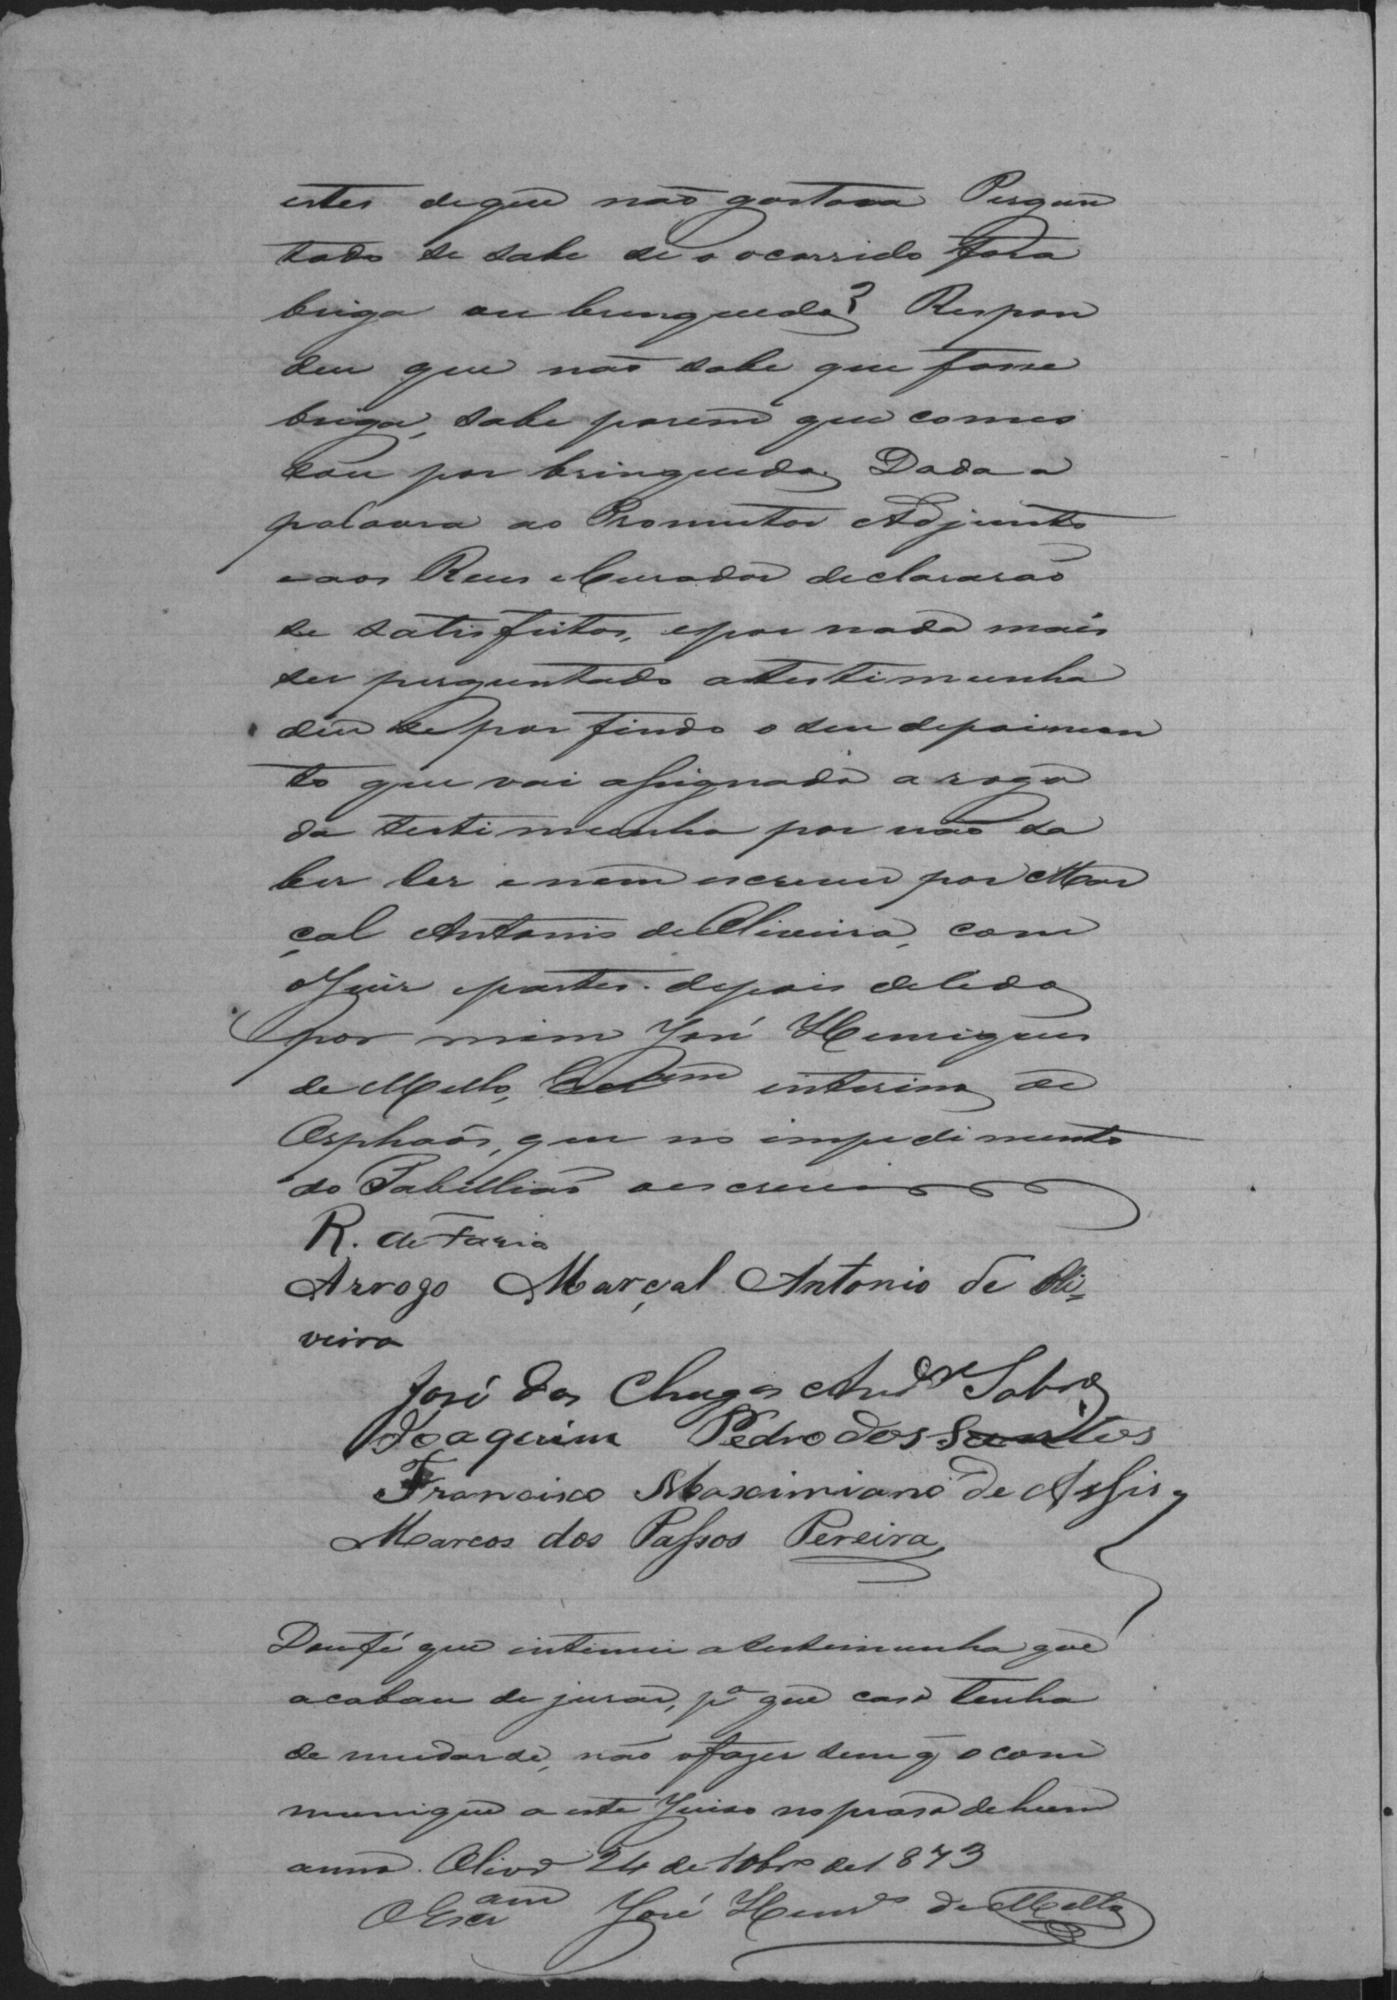 estes de que não gostava Pergun
tado se sabe se o ocorrido fora
briga ou brinquedo? Respon
deu que não sabe que fosse
briga, sabe porem que comes
sou por brinquedo, Dada a
palavra ao Promutor Adjunto
e aos Reus e Curador declararão
se satisfeitos, e por nada mais
ser perguntado a testimunha
deu se por findo o seu depoimen
to que vai assignado a rogo
da testimunha por não sa
ber ler e nem escrever por Mar
çal Antonio de Oliveira, com
o Juiz e partes. depois de lido
por mim José Henriques
de Mello, interino de
Orphaõs, que no impedimento
do Tabellião o escrevi
R. de Faria
Arrogo Marçal Antonio de Oli=
veira
José das Chagas And.e Sobr.o
Joaquim Pedro dos Santos
Francisco Maximiano de Assis
Marcos dos Passos Pereira
Dou fé que intimei a testimunha que
acabou de jurar, p.a que caso tenha
de mudarse, não o fazer sem q̃ o com
munique a este Juiso no praso de hum
anno. Olivr.a 24 de 10br.o de 1873
O Escr.am José Henr.es de Mello